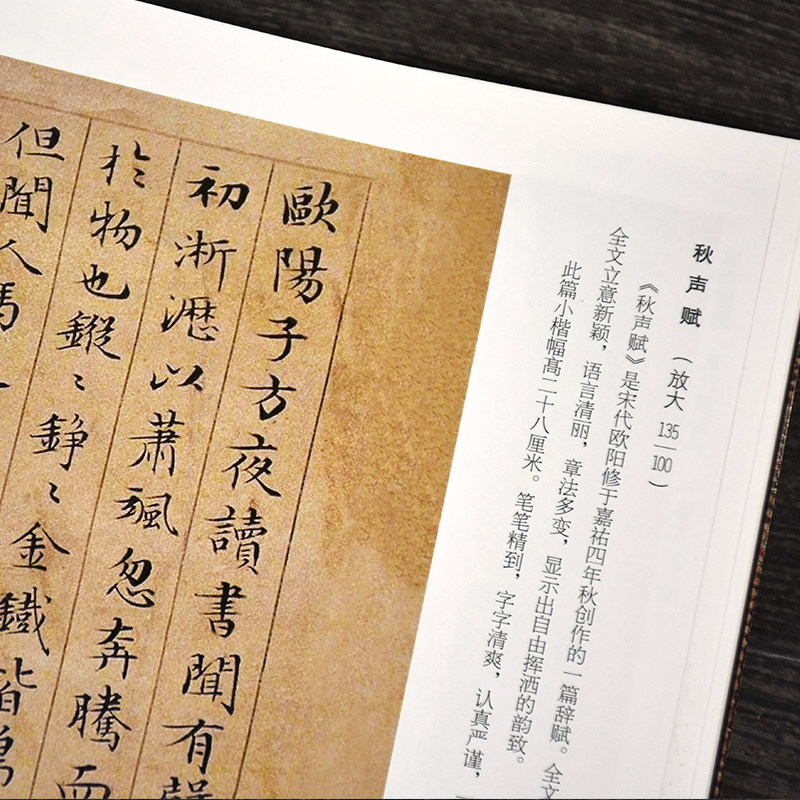 秋声赋 (放大 135/100)
《秋声赋》是宋代欧阳修于嘉祐四年秋创作的一篇辞赋。全文
全文立意新颖，语言清丽，章法多变，显示出自由挥洒的韵致。
此篇小楷幅高二十八厘米。笔笔精到，字字清爽，认真严谨，
歐陽子方夜讀書聞有聲
初淅瀝以蕭颯忽奔騰而
於物也鏦〻錚〻金鐵皆鳴
但聞人馬